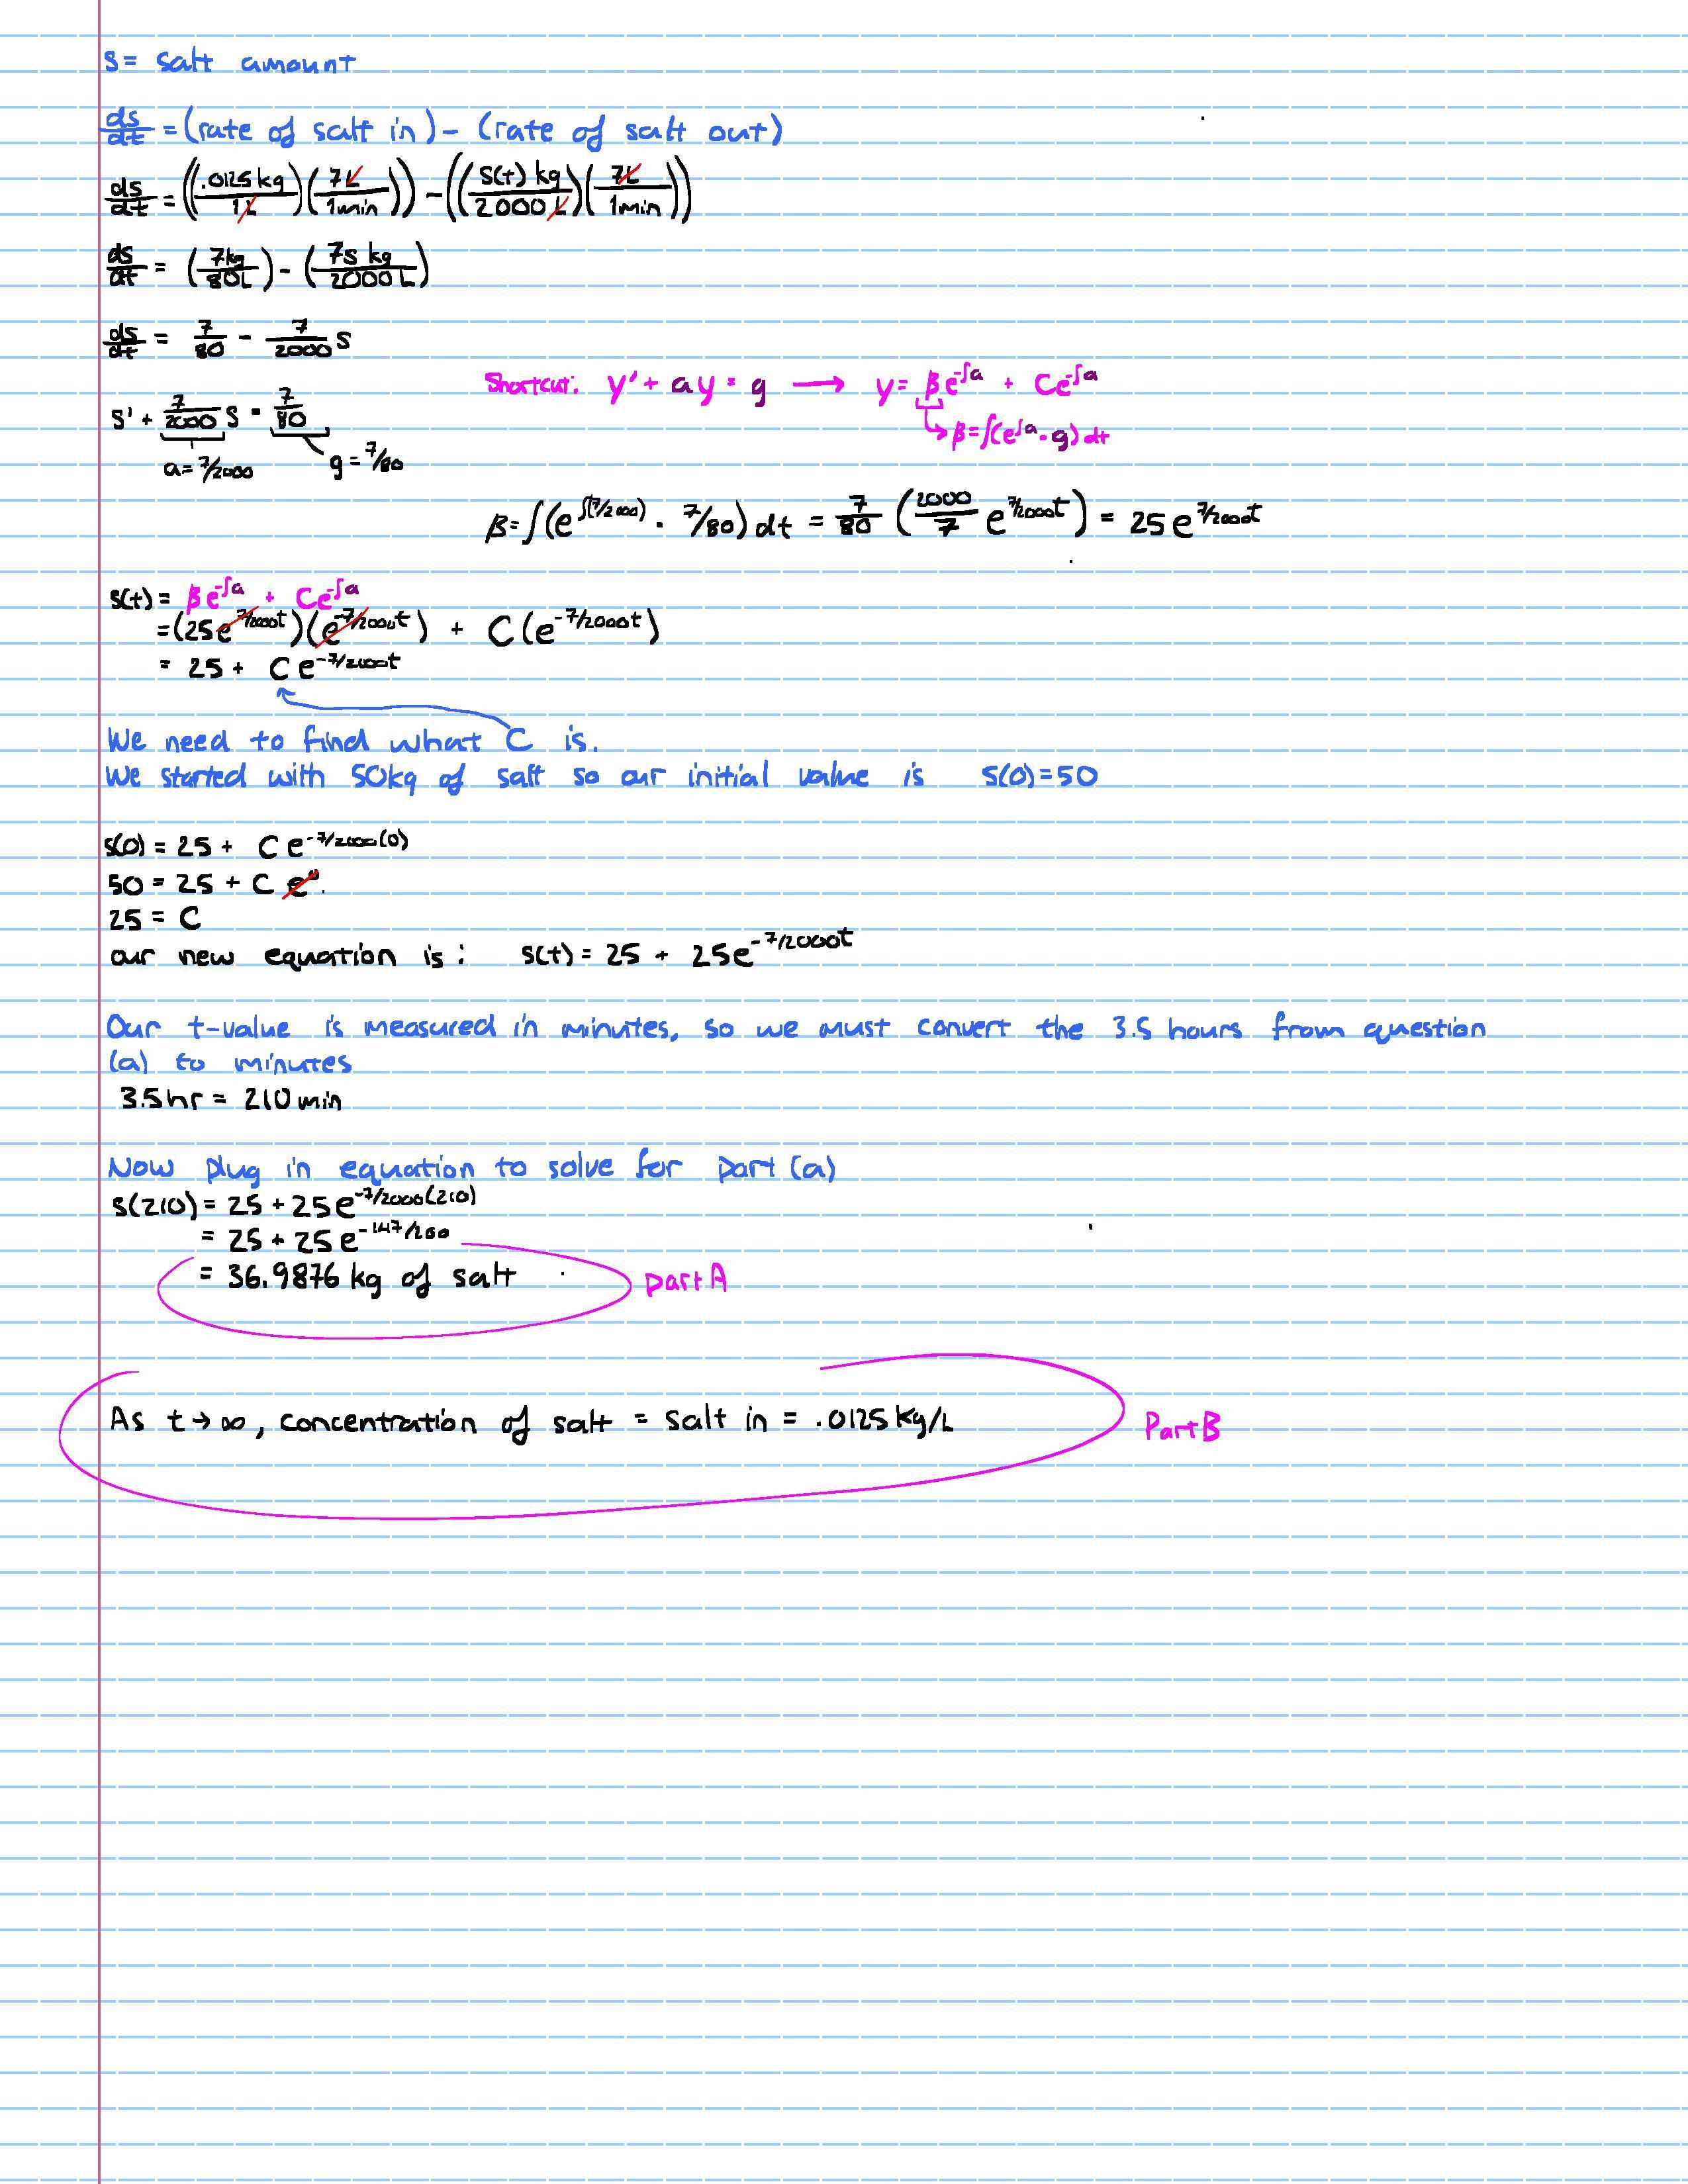 s = salt amount
ds/dt = (rate of salt in) - (rate of salt out)
ds/dt = ((.0125 kg / 1L)(7L / 1min)) - ((S(t) kg / 2000 L)(7L / 1min))
ds/dt = (7kg / 80L) - (7s kg / 2000 L)
ds/dt = 7/80 - 7/2000 s
Shortcut: y' + ay = g → y = βe^-∫a + Ce^-∫a
s' + 7/2000 s = 7/80
β = ∫(e^∫a · g) dt
a = 7/2000 g = 7/80
β = ∫(e^∫(7/2000) · 7/80) dt = 7/80 (2000/7 e^7/2000t) = 25 e^7/2000t
s(t) = βe^-∫a + Ce^-∫a
= (25e^7/2000t)(e^-7/2000t) + C(e^-7/2000t)
= 25 + C e^-7/2000t
We need to find what C is.
We started with 50kg of salt so our initial value is s(0)=50
s(0) = 25 + C e^-7/2000(0)
50 = 25 + C e^0
25 = C
our new equation is: s(t) = 25 + 25e^-7/2000t
Our t-value is measured in minutes, so we must convert the 3.5 hours from question
(a) to minutes
3.5hr = 210 min
Now plug in equation to solve for part (a)
s(210) = 25 + 25e^-7/2000(210)
= 25 + 25e^-147/200
= 36.9876 kg of salt part A
As t→∞, concentration of salt = salt in = .0125 kg/L Part B